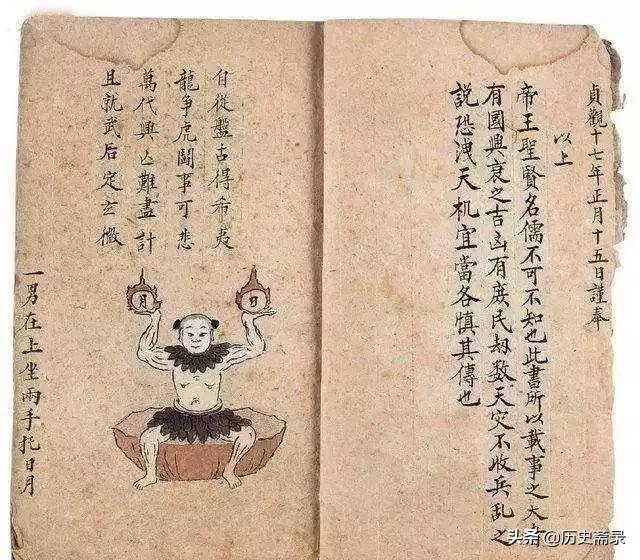 貞觀十七年正月十五日謹奉
以上
帝王聖賢名儒不可不知也此書所以載事之大
有國興衰之吉凶有庶民劫数天灾不收兵乱之
説恐洩天机宜當各慎其傳也
自從盤古得希夷
龍争虎鬪事可悲
萬代興亾難盡計
且就武后定玄微
日
月
一男在上坐兩手托日月
头条@历史斋录